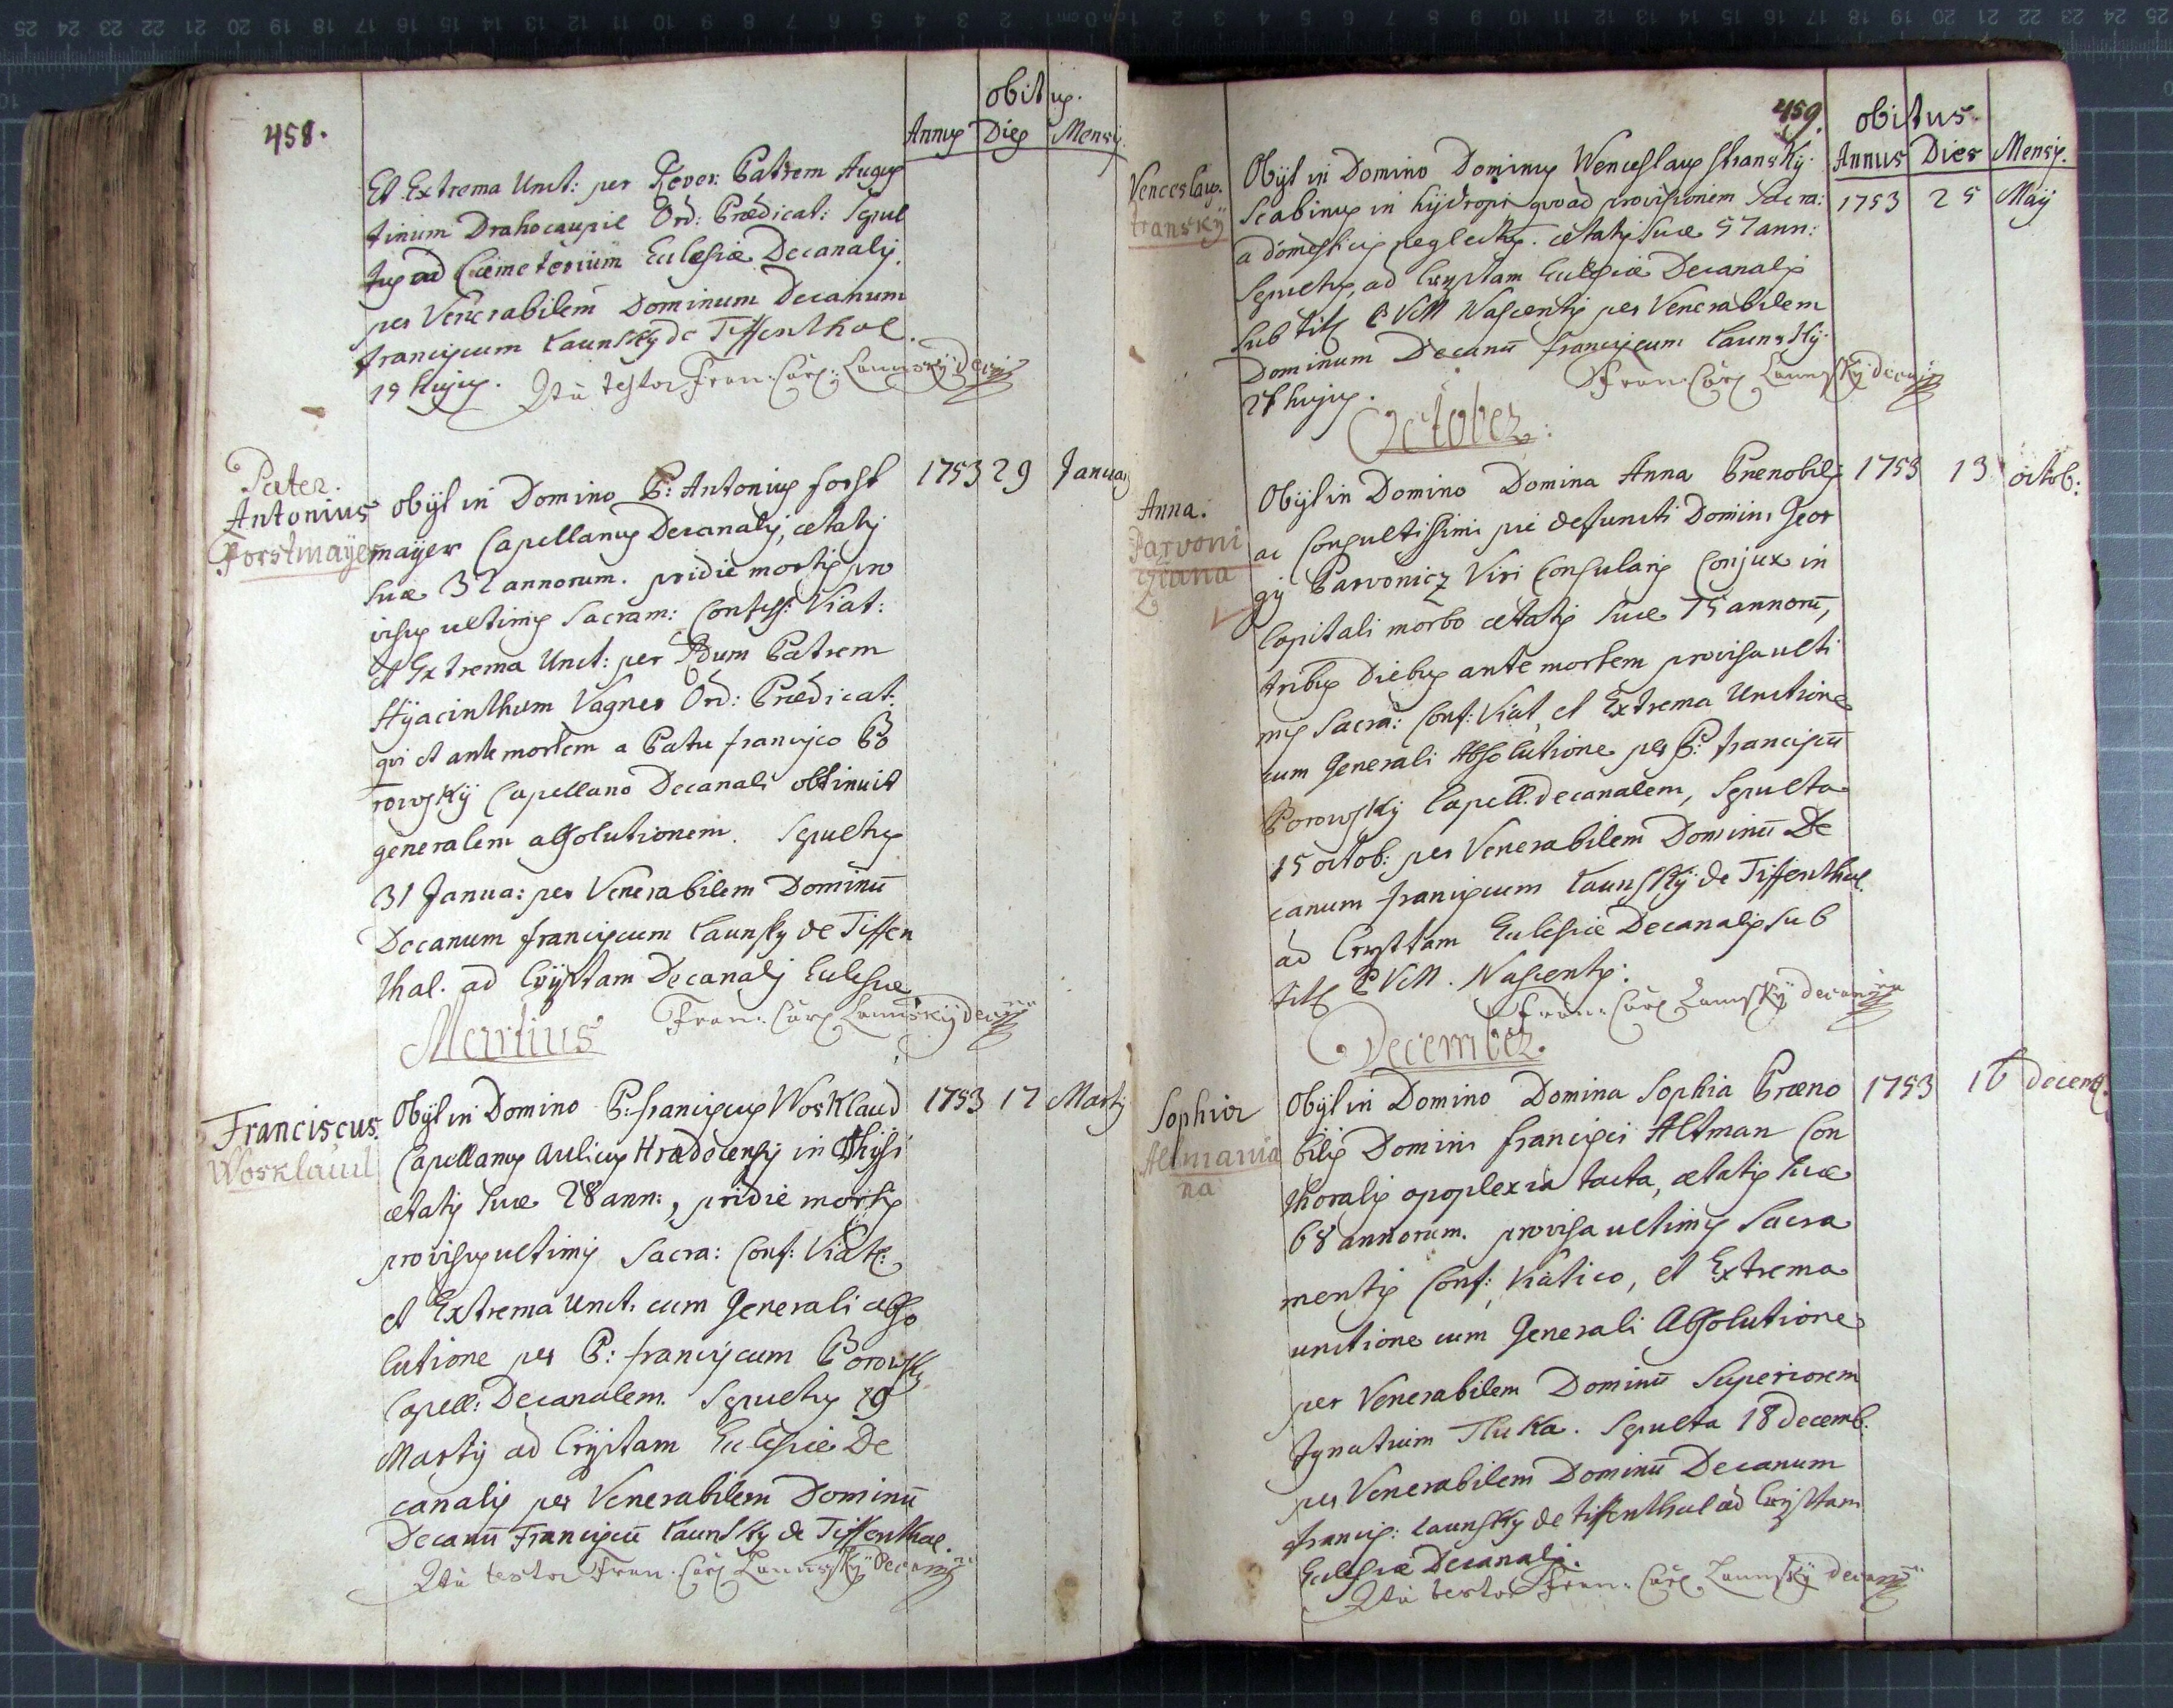 458.
obitus.
Annus Dies Mensis
Et Extrema Unct: per Rever: Patrem Augus
tinum Drahocaupil Ord: Prædicat: Sepul
tus ad Cæmeterium Ecclesiæ Decanalis.
per Venerabilem Dominum Decanum
Franciscum Launsky de Tiffenthal.
19 hujus. Ita testor Fran: Car: Launsky Decanus
Pater.
Antonius
Forstmaÿer
Obijt in Domino P: Antonius Forst 1753 29 Januar
maÿer Capellanus Decanalis, ætatis
suæ 32 annorum. pridie mortis pro
visus ultimis Sacram: Confess: Viat:
et Extrema Unct: per Rdum Patrem
Hÿacinthum Vagner Ord: Prædicat:
qui et ante mortem a Patre Francisco Bo
rowskÿ Capellano Decanali obtinuit
generalem absolutionem. Sepultus
31 Janua: per Venerabilem Dominū
Decanum Franciscum Launsky de Tiffen
thal. ad Crÿptam Decanalis Ecclesiæ
Fran: Car: Launskÿ Decanus
Martius
Franciscus.
Wosklaud
Obijt in Domino P: Franciscus Wosklaud 1753 17 Martij
Capellanus Aulicus Hradecensis in Phtysi
ætatis suæ 28 ann:, pridie mortis
provisus ultimis Sacra: Conf: Viat:
et Extrema Unct. cum Generali abso
lutione per P: Franciscum Borowsky
Capell: Decanalem. Sepultus 19
Martij ad Crÿptam Ecclesiæ De
canalis per Venerabilem Dominū
Decanū Franciscū Launsky de Tiffenthal.
Ita testor Fran: Car: Launskÿ Decanus
459.
obitus
Annus Dies Mensis.
Venceslaus.
Stranskÿ
Obijt in Domino Dominus Wenceslaus Stranskÿ 1753 25 Maij
Scabinus in hÿdropi quoad provisionem Sacra:
a domesticis neglectus. ætatis suæ 57 ann:
Sepultus, ad Cryptam Ecclesiæ Decanalis
sub titl B V M Nascentis per Venerabilem
Dominum Decanū Franciscum Launskÿ.
27 hujus. Fran: Car: Launskÿ decanus
October:
Anna.
Parvoni
cziana
Obijt in Domino Domina Anna Prænobilis 1753 13 octob:
ac Consultissimi pie defuncti Domini Geor
gij Parvonicz Viri Consularis Conjux in
Capitali morbo ætatis suæ 75 annorū,
tribus diebus ante mortem provisa ulti
mis Sacra: Conf: Viat. et Extrema Unctione
cum Generali Absolutione per P: Franciscū
Borowskÿ Capell. decanalem, Sepulta
15 octob: per Venerabilem Dominū De
canum Franciscum Launskÿ de Tiffenthal.
ad Cryptam Ecclesiæ Decanalis sub
titl B V M. Nascentis.
Fran: Car: Launskÿ decanus
December.
Sophia
Altmania
na
Obijt in Domino Domina Sophia Præno 1753 16 decemb.
bilis Domini Francisci Altman Con
thoralis apoplexia tacta, ætatis suæ
68 annorum. provisa ultimis Sacra
mentis Conf: Viatico, et Extrema
unctione cum Generali Absolutione
per Venerabilem Dominū Superiorem
Ignatium Tluka. Sepulta 18 decemb.
per Venerabilem Dominū Decanum
Francis: Launskÿ de tiffenthal ad Crÿptam
Ecclesiæ Decanalis.
Ita testor Fran: Car: Launskÿ decanus